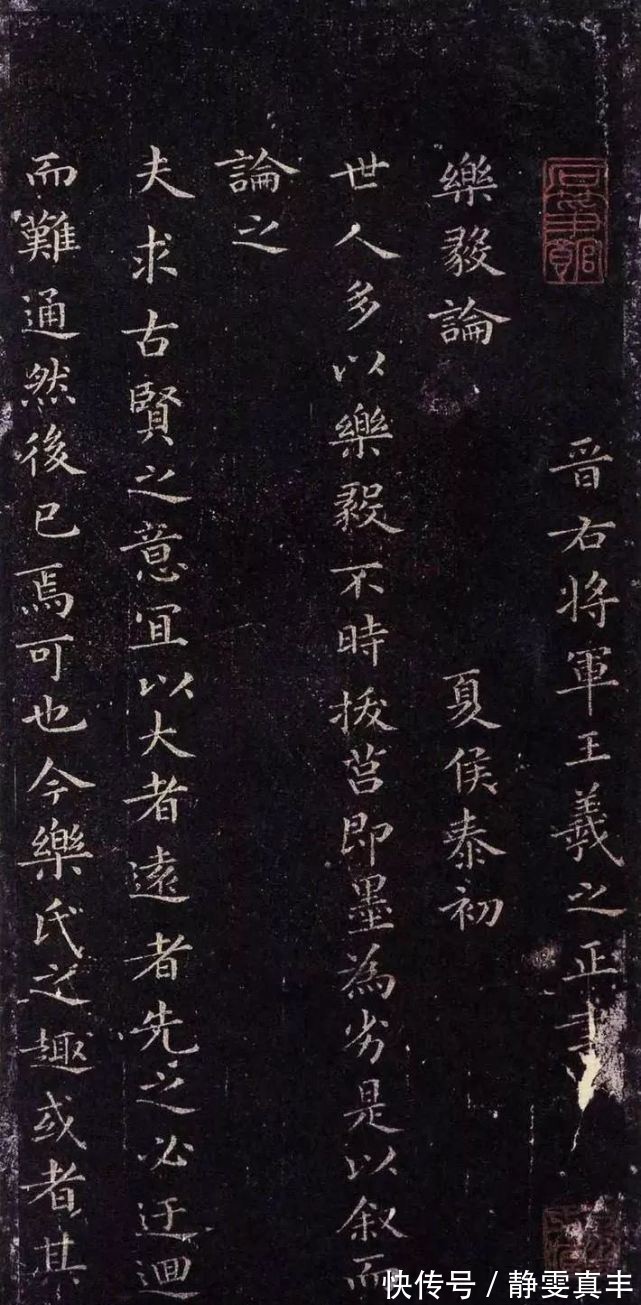 晉右將軍王羲之正書
樂毅論
夏侯泰初
世人多以樂毅不時拔莒即墨為劣是以叙而
論之
夫求古賢之意宜以大者遠者先之必迂迴
而難通然後已焉可也今樂氏之趣或者其
快传号／静雯真丰